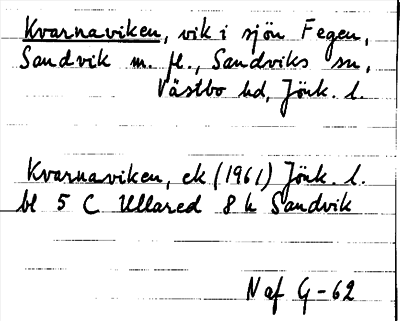 Kvarnaviken, vik i sjön Fegen,
Sandvik m. fl., Sandviks sn,
Västbo hd, Jönk. l.
Kvarnaviken, ek (1961) Jönk. l.
bl 5 C Ullared 8 h Sandvik
Naf G-62